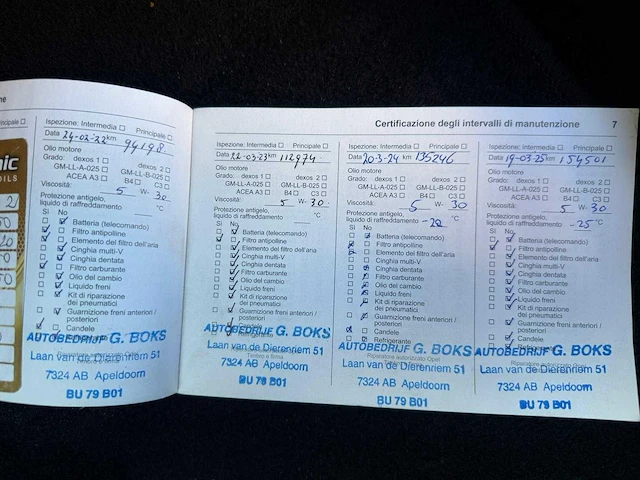 Certificazione degli intervalli di manutenzione 7
Ispezione: Intermedia Principale
Data 24-02-22 km 94198
Olio motore
Grado: dexos 1 dexos 2
GM-LL-A-025 GM-LL-B-025
ACEA A3 B4 C3
Viscosità: 5 W- 30
Protezione antigelo,
liquido di raffreddamento °C
Sì No
Batteria (telecomando)
Filtro antipolline
Elemento del filtro dell'aria
Cinghia multi-V
Cinghia dentata
Filtro carburante
Olio del cambio
Liquido freni
Kit di riparazione
dei pneumatici
Guarnizione freni anteriori /
posteriori
Candele
AUTOBEDRIJF G. BOKS
Laan van de Dierenriem 51
7324 AB Apeldoorn
BU 79 B01
Ispezione: Intermedia Principale
Data 22-03-23 km 112974
Olio motore
Grado: dexos 1 dexos 2
GM-LL-A-025 GM-LL-B-025
ACEA A3 B4 C3
Viscosità: 5 W- 30
Protezione antigelo,
liquido di raffreddamento °C
Sì No
Batteria (telecomando)
Filtro antipolline
Elemento del filtro dell'aria
Cinghia multi-V
Cinghia dentata
Filtro carburante
Olio del cambio
Liquido freni
Kit di riparazione
dei pneumatici
Guarnizione freni anteriori /
posteriori
AUTOBEDRIJF G. BOKS
Timbro e firma
Laan van de Dierenriem 51
7324 AB Apeldoorn
BU 79 B01
Ispezione: Intermedia Principale
Data 20-3-24 km 135246
Olio motore
Grado: dexos 1 dexos 2
GM-LL-A-025 GM-LL-B-025
ACEA A3 B4 C3
Viscosità: 5 W- 30
Protezione antigelo,
liquido di raffreddamento -22 °C
Sì No
Batteria (telecomando)
Filtro antipolline
Elemento del filtro dell'aria
Cinghia multi-V
Cinghia dentata
Filtro carburante
Olio del cambio
Liquido freni
Kit di riparazione
dei pneumatici
Guarnizione freni anteriori /
posteriori
Candele
Refrigerante
AUTOBEDRIJF G. BOKS
Riparatore autorizzato Opel
Laan van de Dierenriem 51
7324 AB Apeldoorn
BU 79 B01
Ispezione: Intermedia Principale
Data 19-03-25 km 154501
Olio motore
Grado: dexos 1 dexos 2
GM-LL-A-025 GM-LL-B-025
ACEA A3 B4 C3
Viscosità: 5 W- 30
Protezione antigelo,
liquido di raffreddamento -25 °C
Sì No
Batteria (telecomando)
Filtro antipolline
Elemento del filtro dell'aria
Cinghia multi-V
Cinghia dentata
Filtro carburante
Olio del cambio
Liquido freni
Kit di riparazione
dei pneumatici
Guarnizione freni anteriori /
posteriori
Candele
AUTOBEDRIJF G. BOKS
Laan van de Dierenriem 51
7324 AB Apeldoorn
BU 79 B01